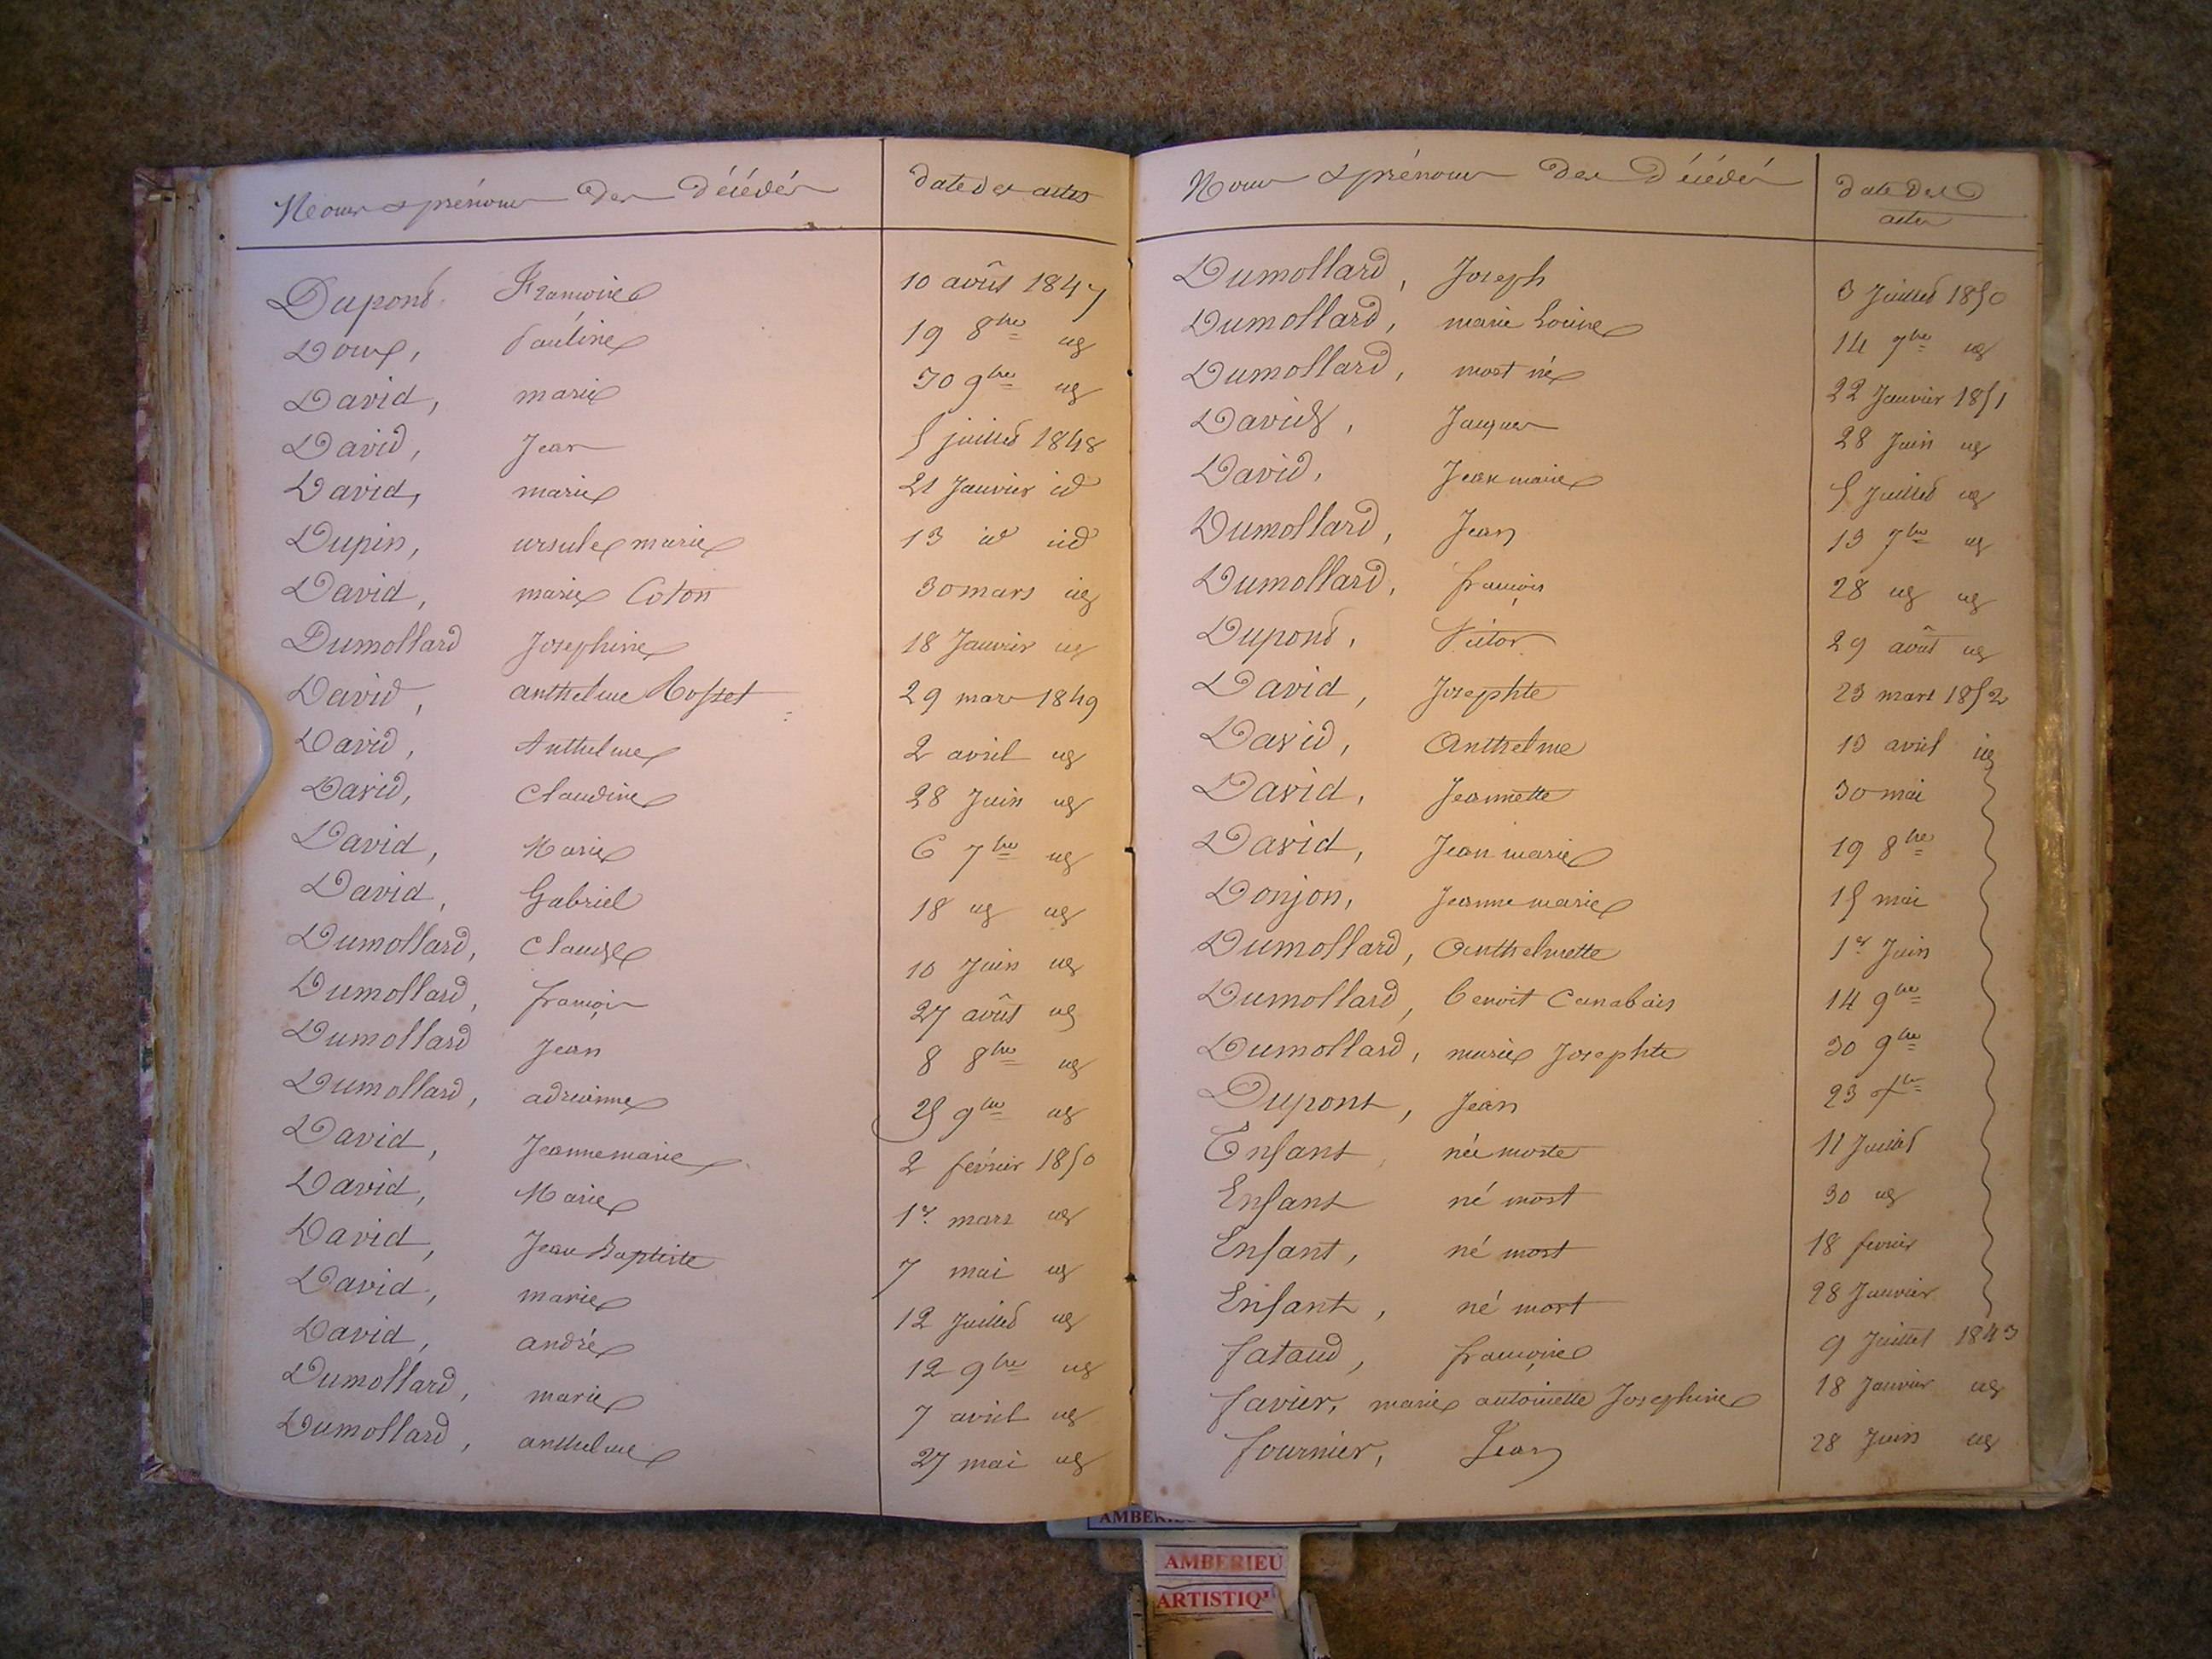 Noms & prénoms des Décédés date des actes
Dupond Françoise 10 août 1847
Doux, Pauline 19 8bre id
David, marie 30 9bre id
David, Jean 5 juillet 1848
David, marie 21 Janvier id
Dupin, ursule marie 13 id id
David, marie Coton 30 mars id
Dumollard Josephine 18 Janvier id
David, anthelme Rosset 29 mars 1849
David, Anthelme 2 avril id
David, Claudine 28 Juin id
David, Marie 6 7bre id
David, Gabriel 18 id id
Dumollard, Claude 10 Juin id
Dumollard, françois 27 août id
Dumollard Jean 8 8bre id
Dumollard, adrienne 25 9bre id
David, Jeanne marie 2 février 1850
David, Marie 1er mars id
David, Jean Baptiste 7 mai id
David, marie 12 Juillet id
David, andré 12 9bre id
Dumollard, marie 7 avril id
Dumollard, anthelme 27 mai id
Noms & prénoms des Décédés date des
actes
Dumollard, Joseph 3 Juillet 1850
Dumollard, marie Louise 14 7bre id
Dumollard, mort né 22 Janvier 1851
David, Jacques 28 Juin id
David, Jean marie 5 Juillet id
Dumollard, Jean 13 7bre id
Dumollard, françois 28 id id
Dupond, Victor 29 août id
David, Josephte 23 mars 1852
David, Anthelme 13 avril id
David, Jeannette 30 mai
David, Jean marie 19 8bre
Donjon, Jeanne marie 15 mai
Dumollard, Anthelmette 1er Juin
Dumollard, Benoit Canabais 14 9bre
Dumollard, marie Josephte 30 9bre
Dupont, Jean 23 Xbre
Enfant née morte 11 Juillet
Enfant né mort 30 id
Enfant, né mort 18 fevrier
Enfant, né mort 28 Janvier
fataud, françoise 9 Juillet 1843
favier, marie antoinette Josephine 18 Janvier id
fournier, Jean 28 Juin id
AMBERIEU
ARTISTIQ